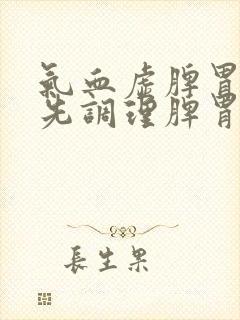 氣血虛脾胃
先調理脾胃
長生果